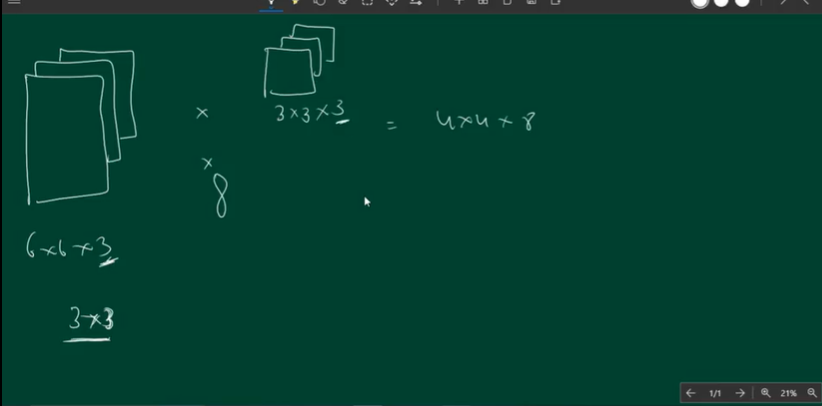 × 3×3×3 = 4×4×8
×
8
6×6×3
3×3
1/1 21%